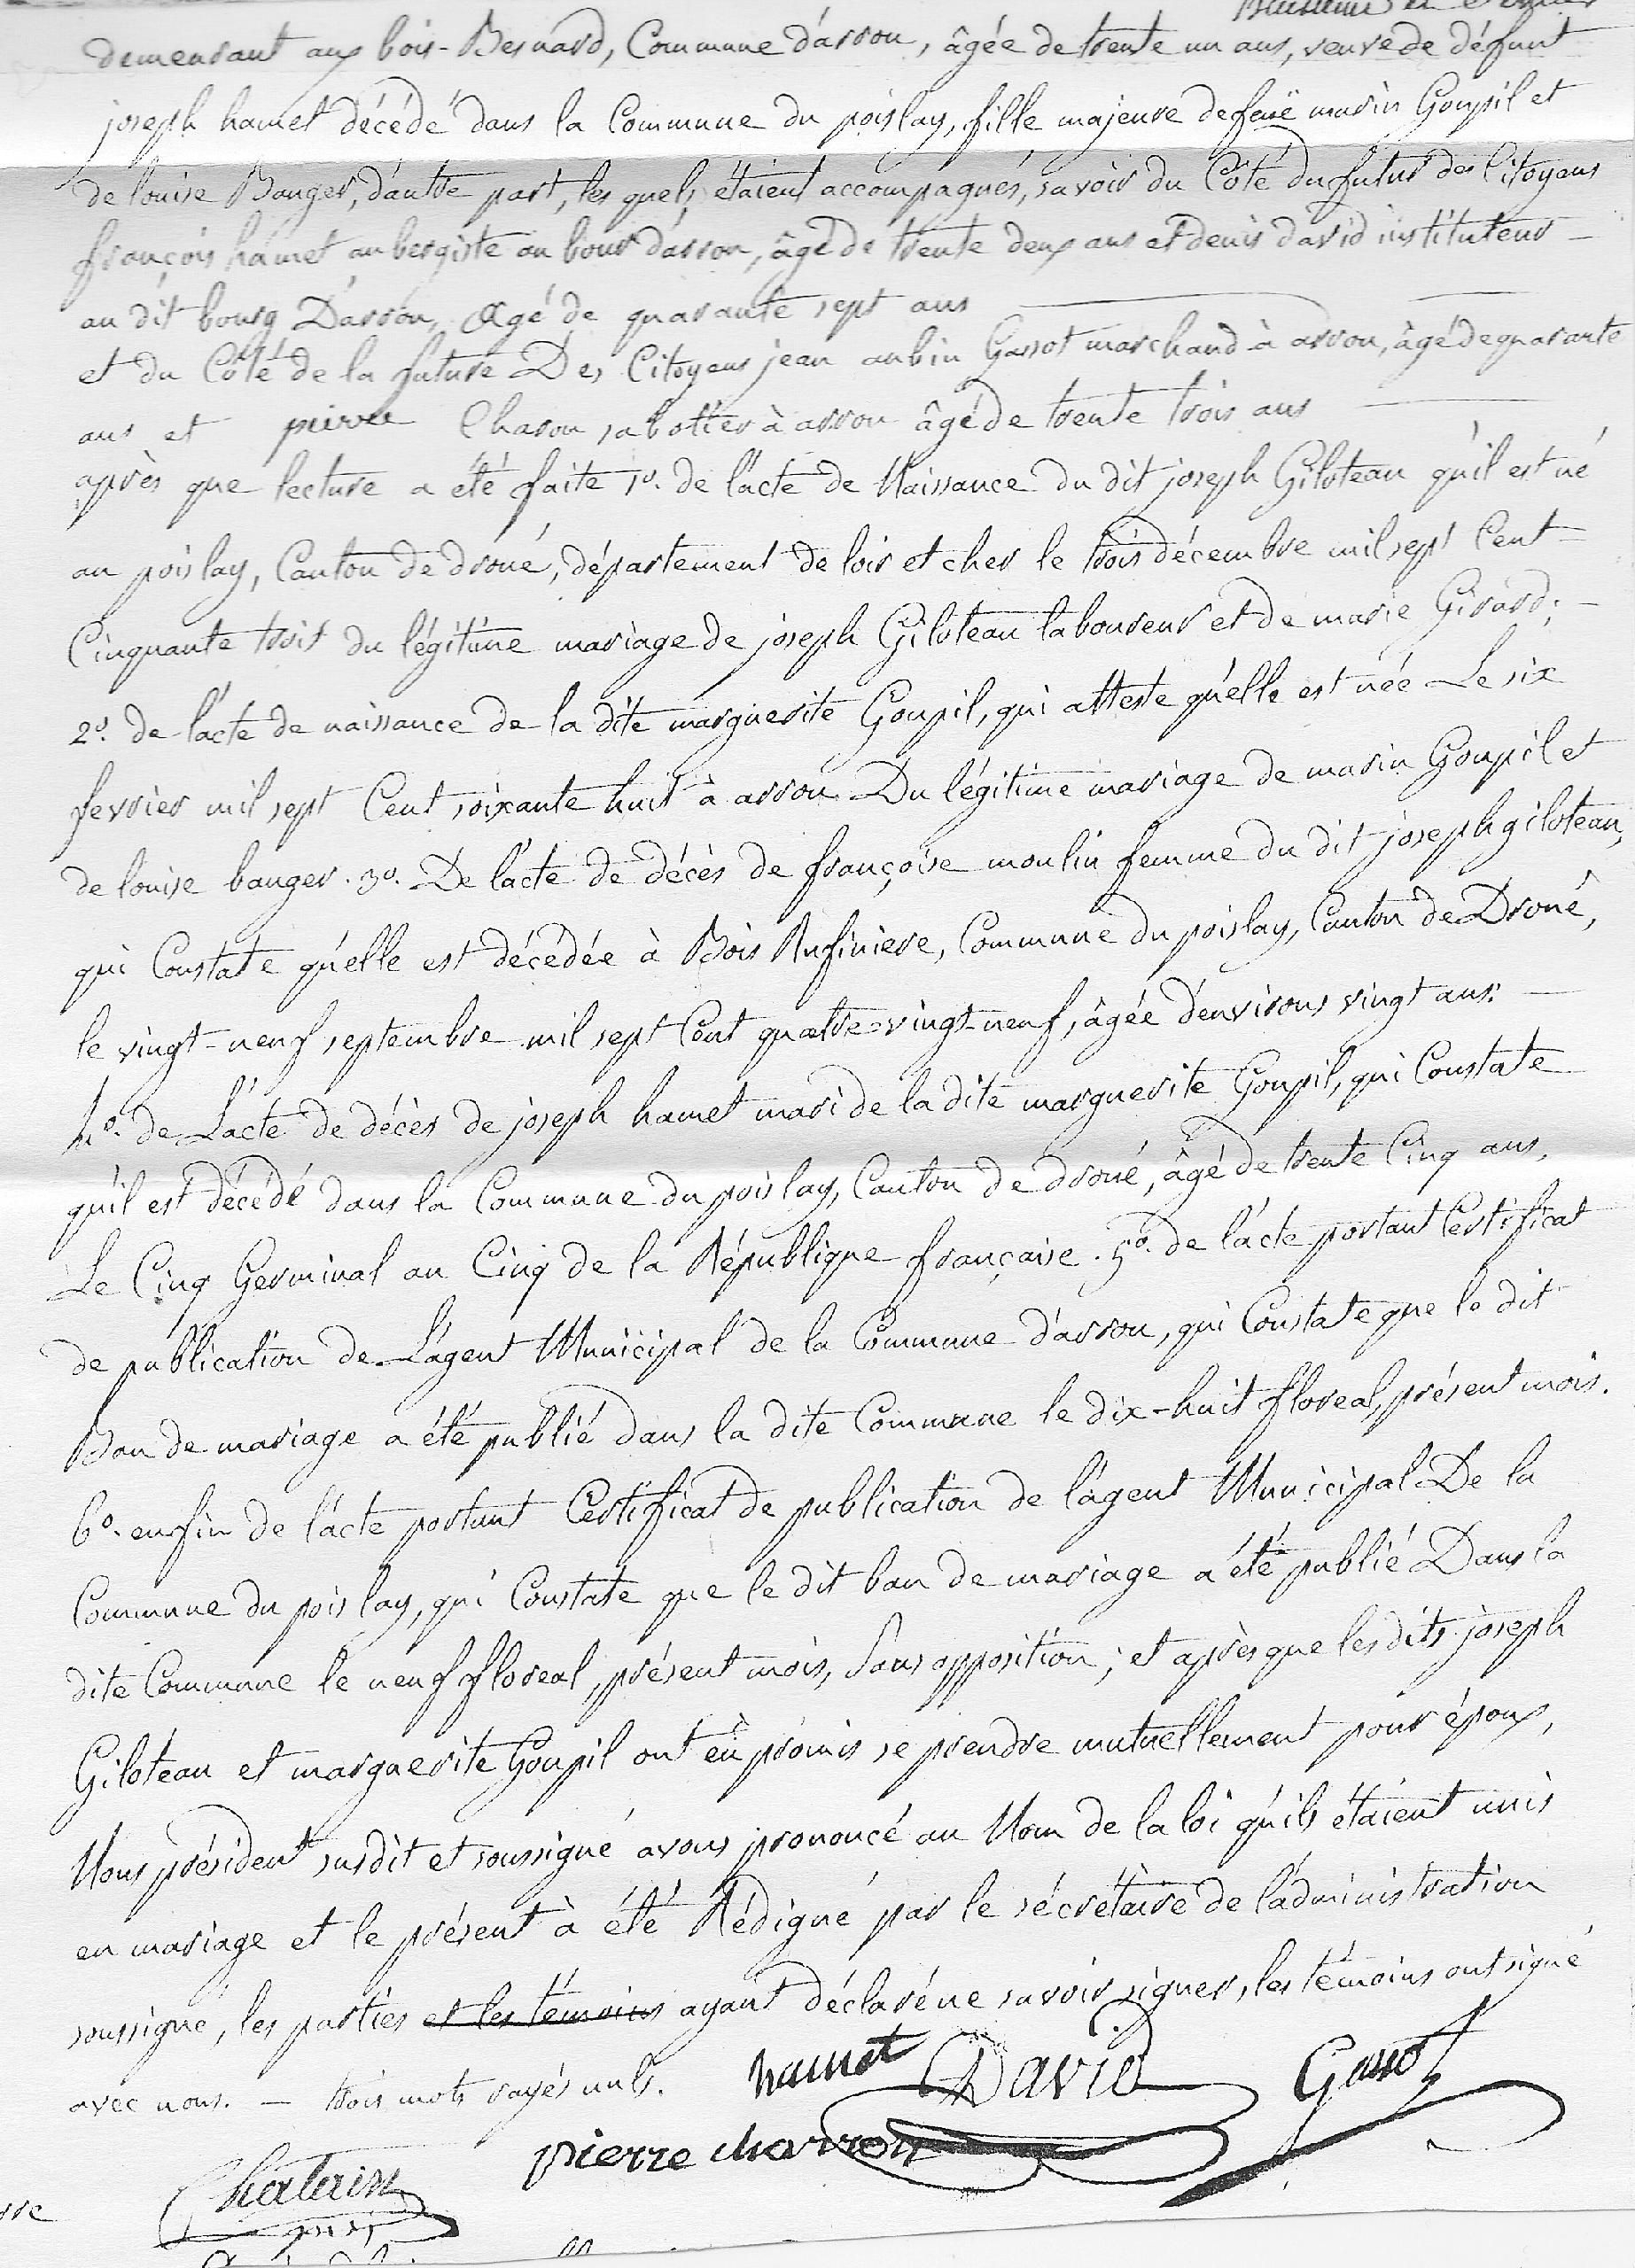 demeurant aux bois-Besnard, Commune d'arrou, âgée de trente un ans, veuve de défunt
joseph hamet décédé dans la Commune du poislay, fille majeure de feüe marin Goupil et
de louise Bauger, d'autre part, les quels étaient accompagnés, savoir du Côté du futur des Citoyens
françois hamet aubergiste au bour d'arrou, âgé de trente deux ans et denis david instituteur
au dit bourg D'arrou, Agé de quarante sept ans
et du Côté de la future Des Citoyens jean aubin Gassot marchand à arrou, âgé de quarante
ans et pierre Charon sabotier à arrou âgé de trente trois ans
après que lecture a été faite 1º. de l'acte de Naissance du dit joseph Giloteau qu'il est né
au poislay, Canton de droué, département de loir et cher le trois décembre mil sept Cent
Cinquante trois du légitime mariage de joseph Giloteau laboureur et de marie Girard;
2º. de l'acte de naissance de la dite marguerite Goupil, qui atteste qu'elle est née Le six
fevrier mil sept Cent soixante huit à arrou Du légitime mariage de marin Goupil et
de louise bauger. 3º. De l'acte de décès de françoise moulin femme du dit joseph giloteau,
qui Constate qu'elle est décédée à Bois Rufiniere, Commune du poislay, Canton de Droué,
le vingt-neuf septembre mil sept Cent quatre-vingt-neuf, âgée d'environs vingt ans.
4º. de L'acte de décès de joseph hamet mari de la dite marguerite Goupil, qui Constate
qu'il est décédé dans la Commune du poislay, Canton de droué, âgé de trente Cinq ans,
Le Cinq Germinal an Cinq de la République française. 5º. de l'acte portant Certificat
de publication de L'agent Municipal de la Commune d'arrou, qui Constate que le dit
Ban de mariage a été publié dans la dite Commune le dix-huit floreal, présent mois.
6º. enfin de l'acte portant Certificat de publication de l'agent Municipal De la
Commune du poislay, qui Constate que le dit ban de mariage a été publié Dans la
dite Commune le neuf floreal, présent mois, Sans opposition; et après que les dits joseph
Giloteau et marguerite Goupil ont eü promis se prendre mutuellement pour époux,
Nous président susdit et soussigné avons prononcé au Nom de la loi qu'ils étaient unis
en mariage et le présent à été Rédigné par le sécrétaire de l'administration
soussigné, les parties et les témoins ayant déclaré ne savoir signer, les témoins ont signé
avec nous. — trois mots rayés nuls.
hamet David Gassot
pierre charron
Chatain